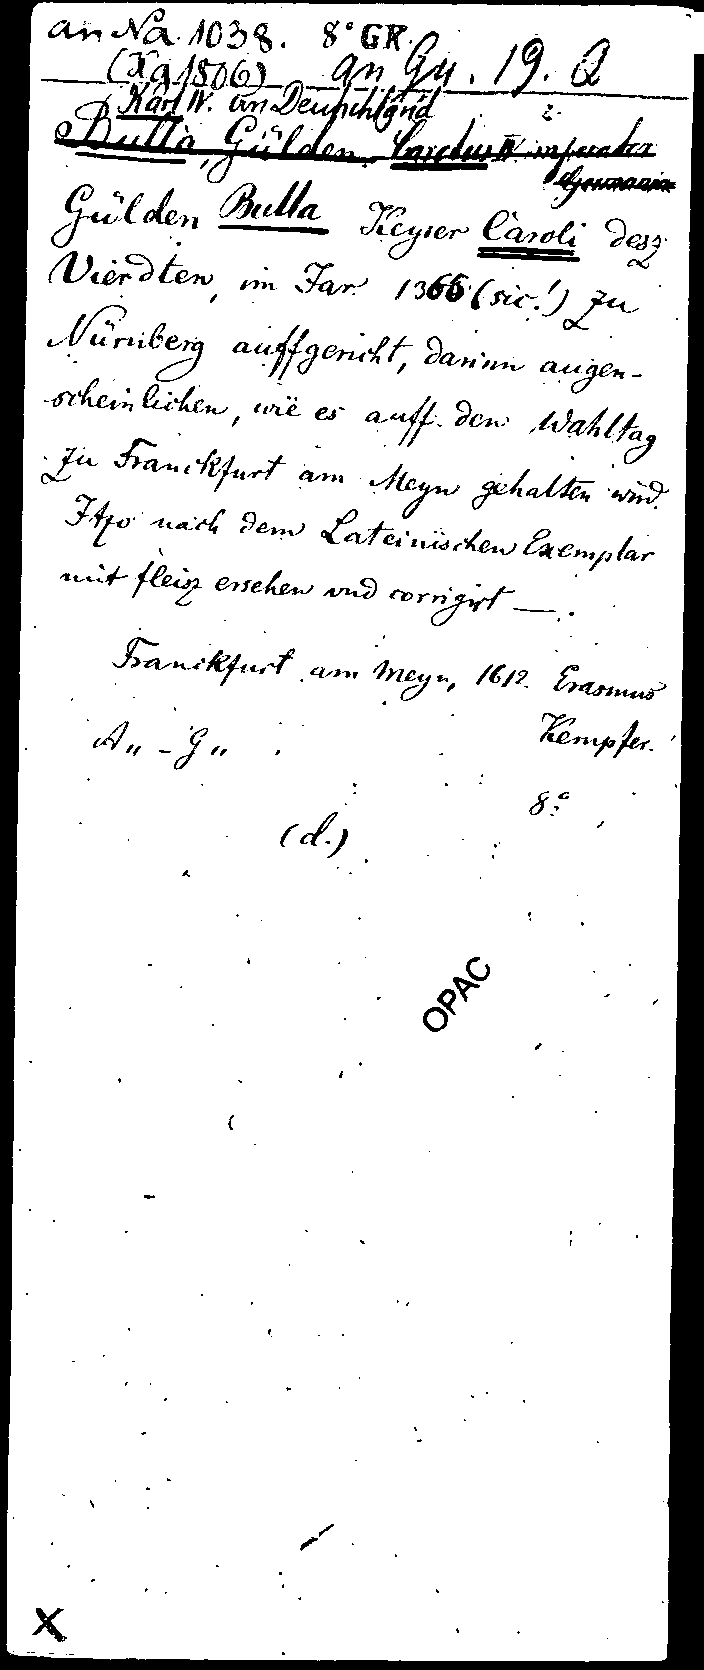 an Na. 1038. 8° GR.
(Xg 1806) an Gy. 19. Q
Karl IV. in Deutschland
Bulla, Gülden. Carolus IV imperator
Gülden Bulla Keyser Caroli desz
Vierdten, im Jar 1366 (sic!) zu
Nürnberg auffgericht, darinn augen-
scheinlichen, wie es auff den Wahltag
zu Franckfurt am Meyn gehalten wird.
Itzo nach dem Lateinischen Exemplar
mit fleisz ersehen vnd corrigirt —.
Franckfurt am Meyn, 1612. Erasmus
Kempfer.
A„ - G„
8°
(d.)
OPAC
X